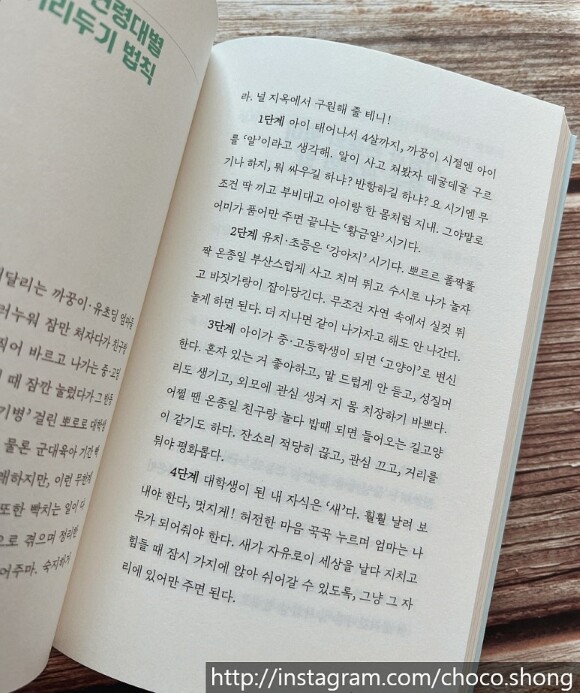 연령대별
리두기 법칙
달리는 까꿍이·유초딩 엄마들
러누워 잠만 처자다가 친구와
찍어 바르고 나가는 중·고딩
때 잠깐 눌렀다가 그 한동
기병' 걸린 뽀로로 대학생
물론 군대육아 기간
래하지만, 이런 무한계
또한 빡치는 일이 다
으로 겪으며 정리한
어주마. 숙지하거
라. 널 지옥에서 구원해 줄 테니!
1단계 아이 태어나서 4살까지, 까꿍이 시절엔 아이
를 '알'이라고 생각해. 알이 사고 쳐봤자 데굴데굴 구르
기나 하지, 뭐 싸우길 하냐? 반항하길 하냐? 요 시기엔 무
조건 딱 끼고 부비대고 아이랑 한 몸처럼 지내. 그야말로
어미가 품어만 주면 끝나는 '황금알' 시기다.
2단계 유치·초등은 '강아지' 시기다. 뽀르르 폴짝폴
짝 온종일 부산스럽게 사고 치며 뛰고 수시로 나가 놀자
고 바짓가랑이 잡아당긴다. 무조건 자연 속에서 실컷 뛰
놀게 하면 된다. 더 지나면 같이 나가자고 해도 안 나간다.
3단계 아이가 중·고등학생이 되면 '고양이'로 변신
한다. 혼자 있는 거 좋아하고, 말 드럽게 안 듣고, 성질머
리도 생기고, 외모에 관심 생겨 지 몸 치장하기 바쁘다.
어쩔 땐 온종일 친구랑 놀다 밥때 되면 들어오는 길고양
이 같기도 하다. 잔소리 적당히 끊고, 관심 끄고, 거리를
둬야 평화롭다.
4단계 대학생이 된 내 자식은 '새'다. 훨훨 날려 보
내야 한다, 멋지게! 허전한 마음 꾹꾹 누르며 엄마는 나
무가 되어줘야 한다. 새가 자유로이 세상을 날다 지치고
힘들 때 잠시 가지에 앉아 쉬어갈 수 있도록, 그냥 그 자
리에 있어만 주면 된다.
http://instagram.com/choco.shong